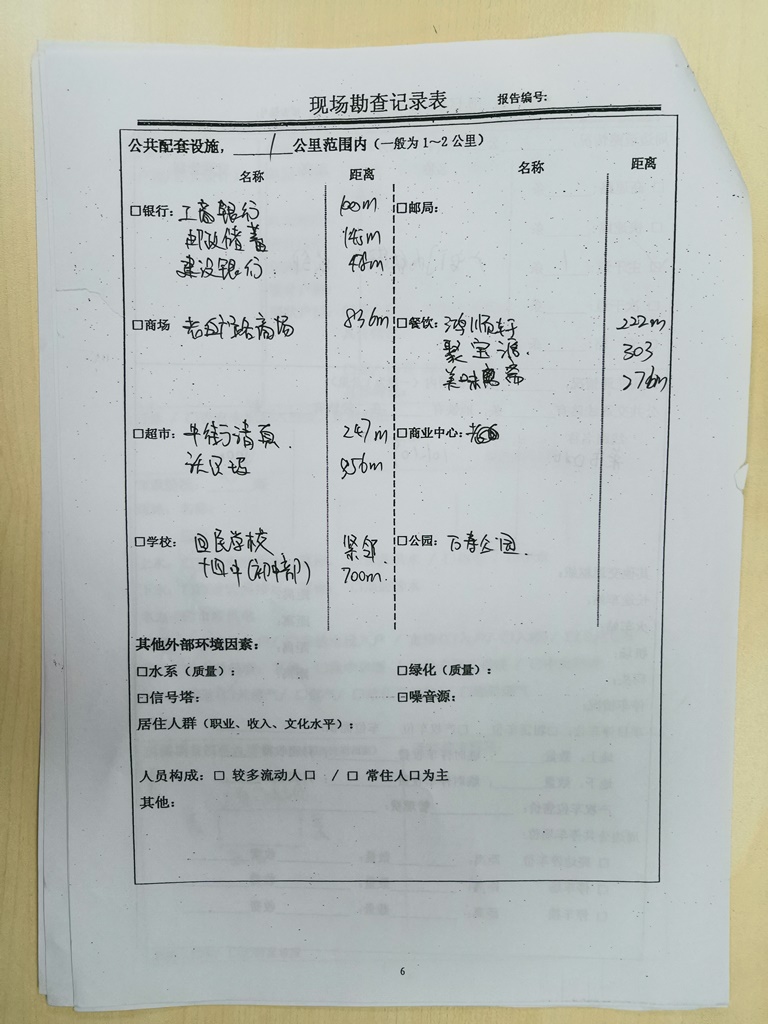 现场勘查记录表 报告编号:
公共配套设施，__/__公里范围内（一般为1～2公里）
名称 距离 名称 距离
□银行：工商银行 100m □邮局：
邮政储蓄 145m
建设银行 48m
□商场 商场 836m □餐饮：鸿顺轩 222m
聚宝源 303
美味斋 276m
□超市：牛街清真 247m □商业中心：
法源 956m
□学校：回民学校 紧邻 □公园：万寿公园
十四中(初中部) 700m
其他外部环境因素：
□水系（质量）： □绿化（质量）：
□信号塔： □噪音源：
居住人群（职业、收入、文化水平）：
人员构成：□ 较多流动人口 / □ 常住人口为主
其他：
6